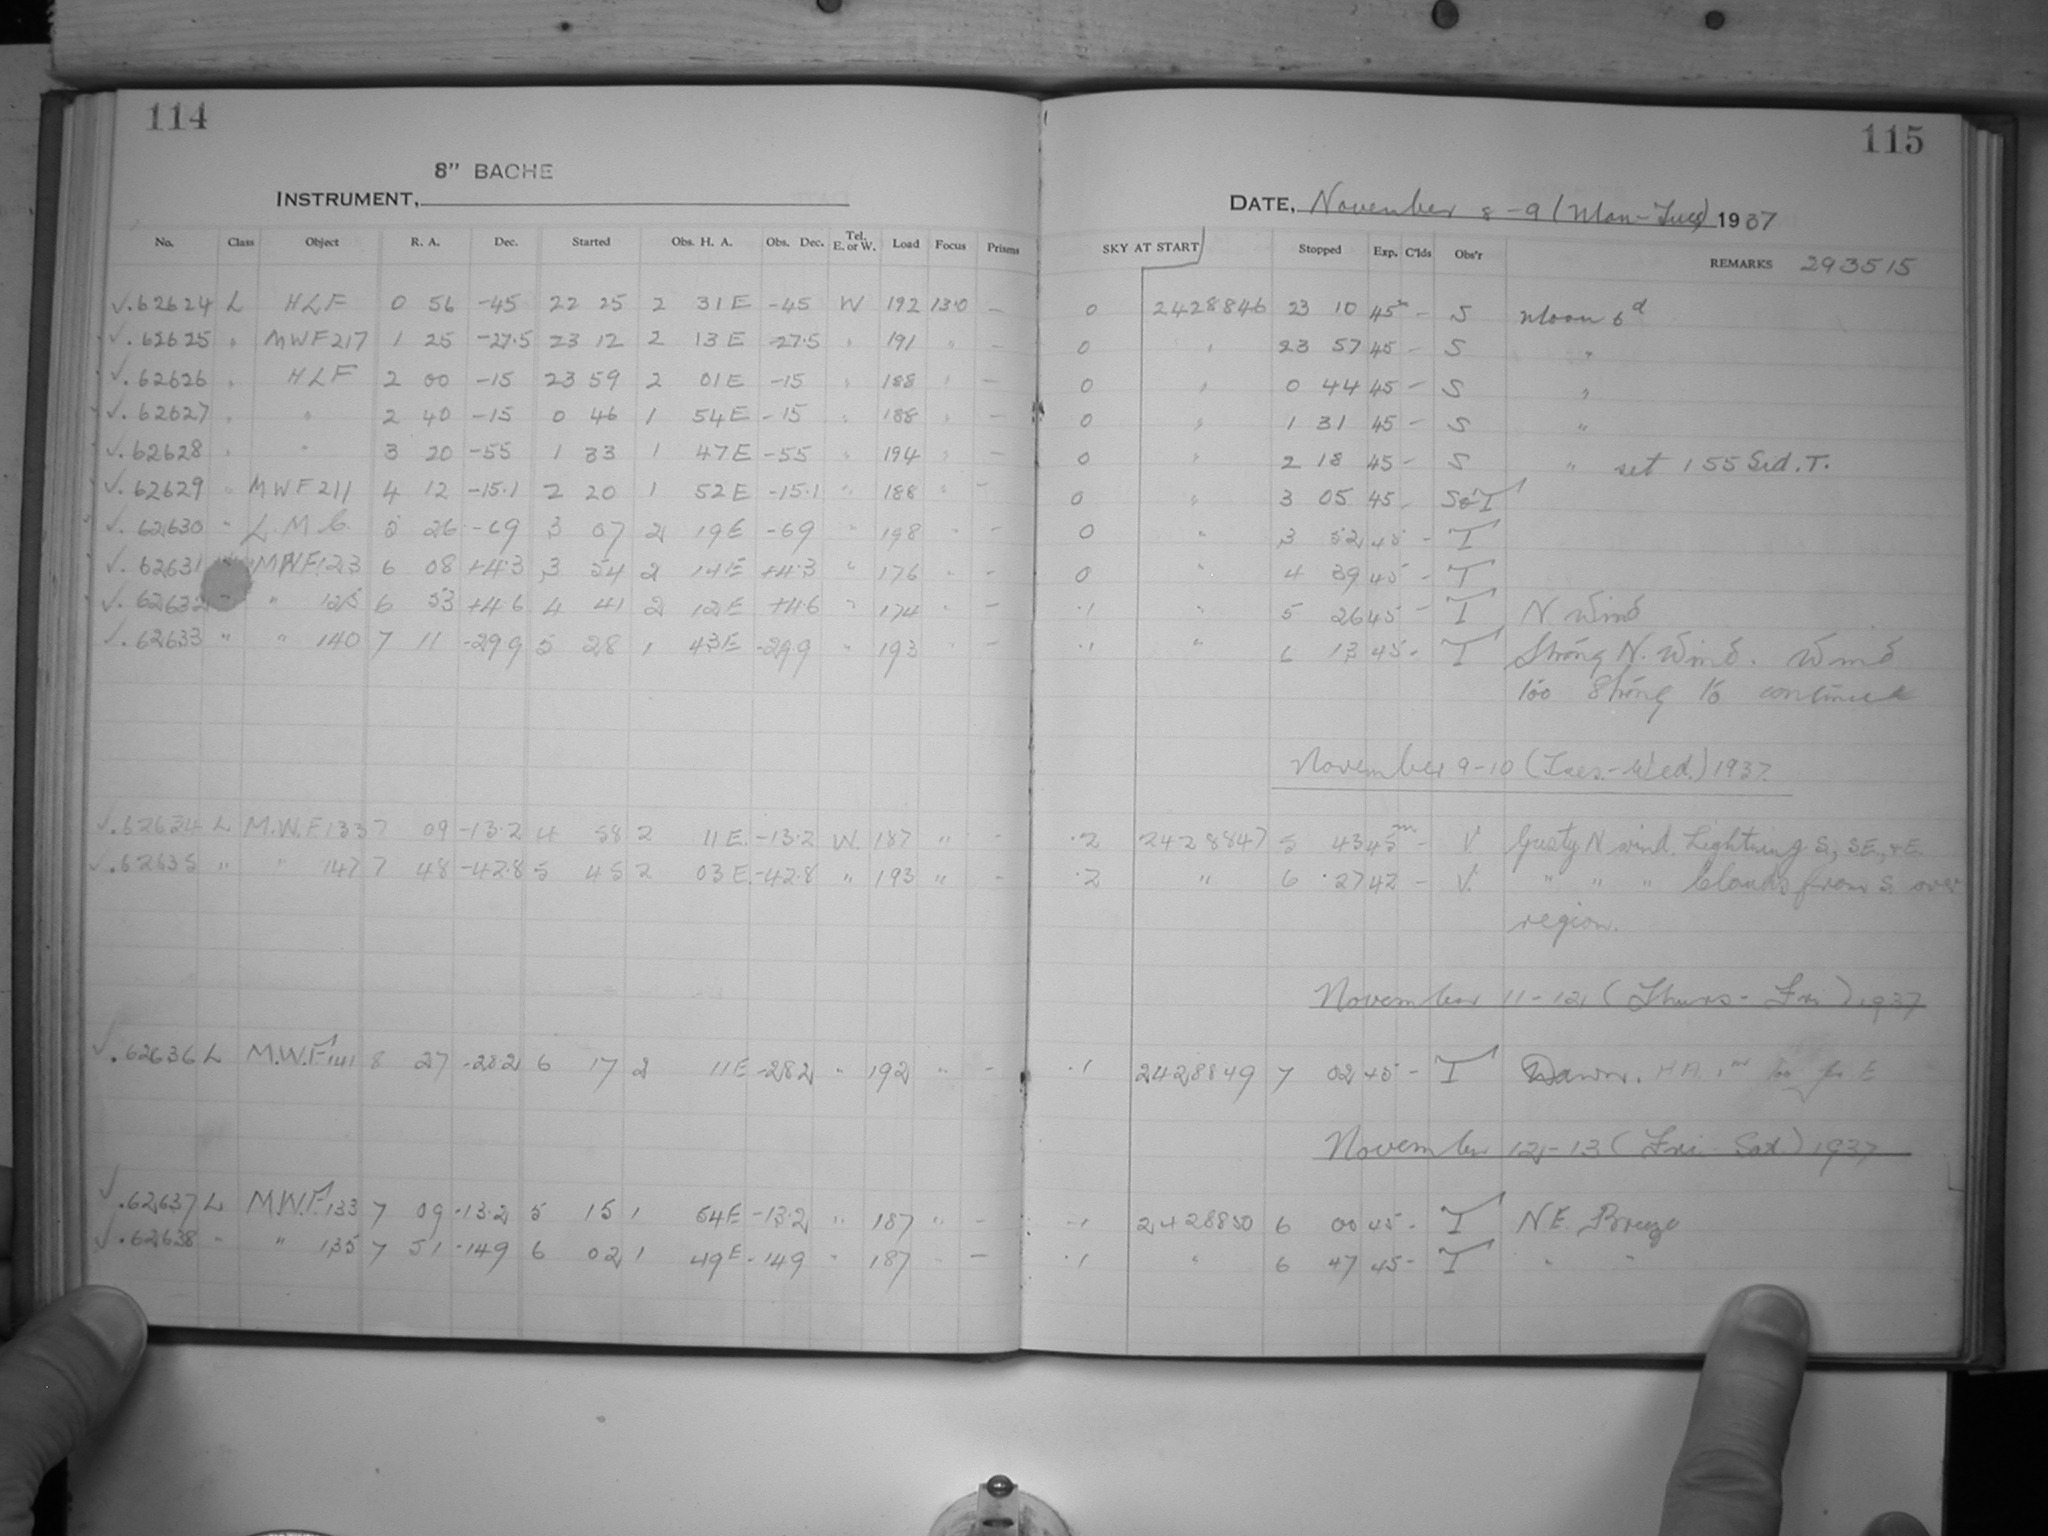 114
8" BACHE
INSTRUMENT,
No. Class Object R. A. Dec. Started Obs. H. A. Obs. Dec. Tel. E. or W. Load Focus Prisms
√.62624 L HLF 0 56 -45 22 25 2 31E -45 W 192 13.0 —
√.62625 " MWF217 1 25 -27.5 23 12 2 13E -27.5 " 191 " —
√.62626 " HLF 2 00 -15 23 59 2 01E -15 " 188 " —
√.62627 " " 2 40 -15 0 46 1 54E -15 " 188 " —
√.62628 " " 3 20 -55 1 33 1 47E -55 " 194 " —
√.62629 " MWF211 4 12 -15.1 2 20 1 52E -15.1 " 188 " —
√.62630 " L.M.C. 5 26 -69 3 07 2 19E -69 " 198 " -
√.62631 MWF.123 6 08 +4.3 3 54 2 14E +4.3 " 176 " -
√.62632 " " 125 6 53 +4.6 4 41 2 12E +4.6 " 174 " -
√.62633 " " 140 7 11 -299 5 28 1 43E -299 " 193 " -
√.62634 L M.W.F.133 7 09 -13.2 4 58 2 11E. -13.2 W. 187 " -
√.62635 " " 147 7 48 -42.8 5 45 2 03E. -42.8 " 193 " -
√.62636 L M.W.F.141 8 27 -282 6 17 2 11E -282 " 192 " -
√.62637 L M.W.F.133 7 09 -13.2 5 15 1 54E -13.2 " 187 " -
√.62638 " " 135 7 51 -149 6 02 1 49E -149 " 187 " -
115
DATE, November 8-9 (Mon-Tues) 1937
SKY AT START Stopped Exp. C'lds Obs'r REMARKS 293515
0 2428846 23 10 45m - S Moon 6d
0 " 23 57 45 - S "
0 " 0 44 45 - S "
0 " 1 31 45 - S "
0 " 2 18 45 - S " set 1 55 Sid. T.
0 " 3 05 45 S&T
0 " 3 52 45 - T
0 " 4 39 45 - T
.1 " 5 26 45 - T N. Wind
.1 " 6 13 45 - T Strong N. Wind. Wind
too strong to continue
November 9-10 (Tues.-Wed.) 1937
.2 2428847 5 43 45m - V. Gusty N wind. Lightning S., SE., & E.
.2 " 6 27 42 - V. " " " Clouds from S. over
region.
November 11-12 (Thurs - Fri) 1937
.1 2428849 7 02 45 - T Dawn. H A. 1m too far E
November 12-13 (Fri - Sat.) 1937
.1 2428850 6 00 45 - T N.E. Breeze
.1 " 6 47 45 - T " "